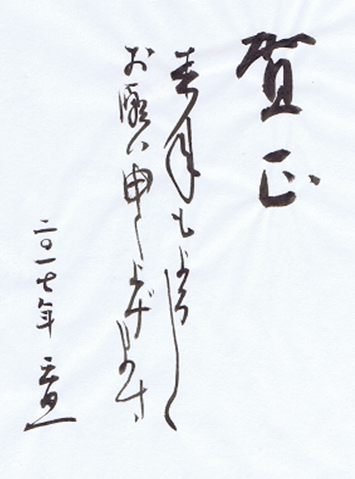 賀正
本年もよろしく
お願い申し上げます
二〇一七年 元旦